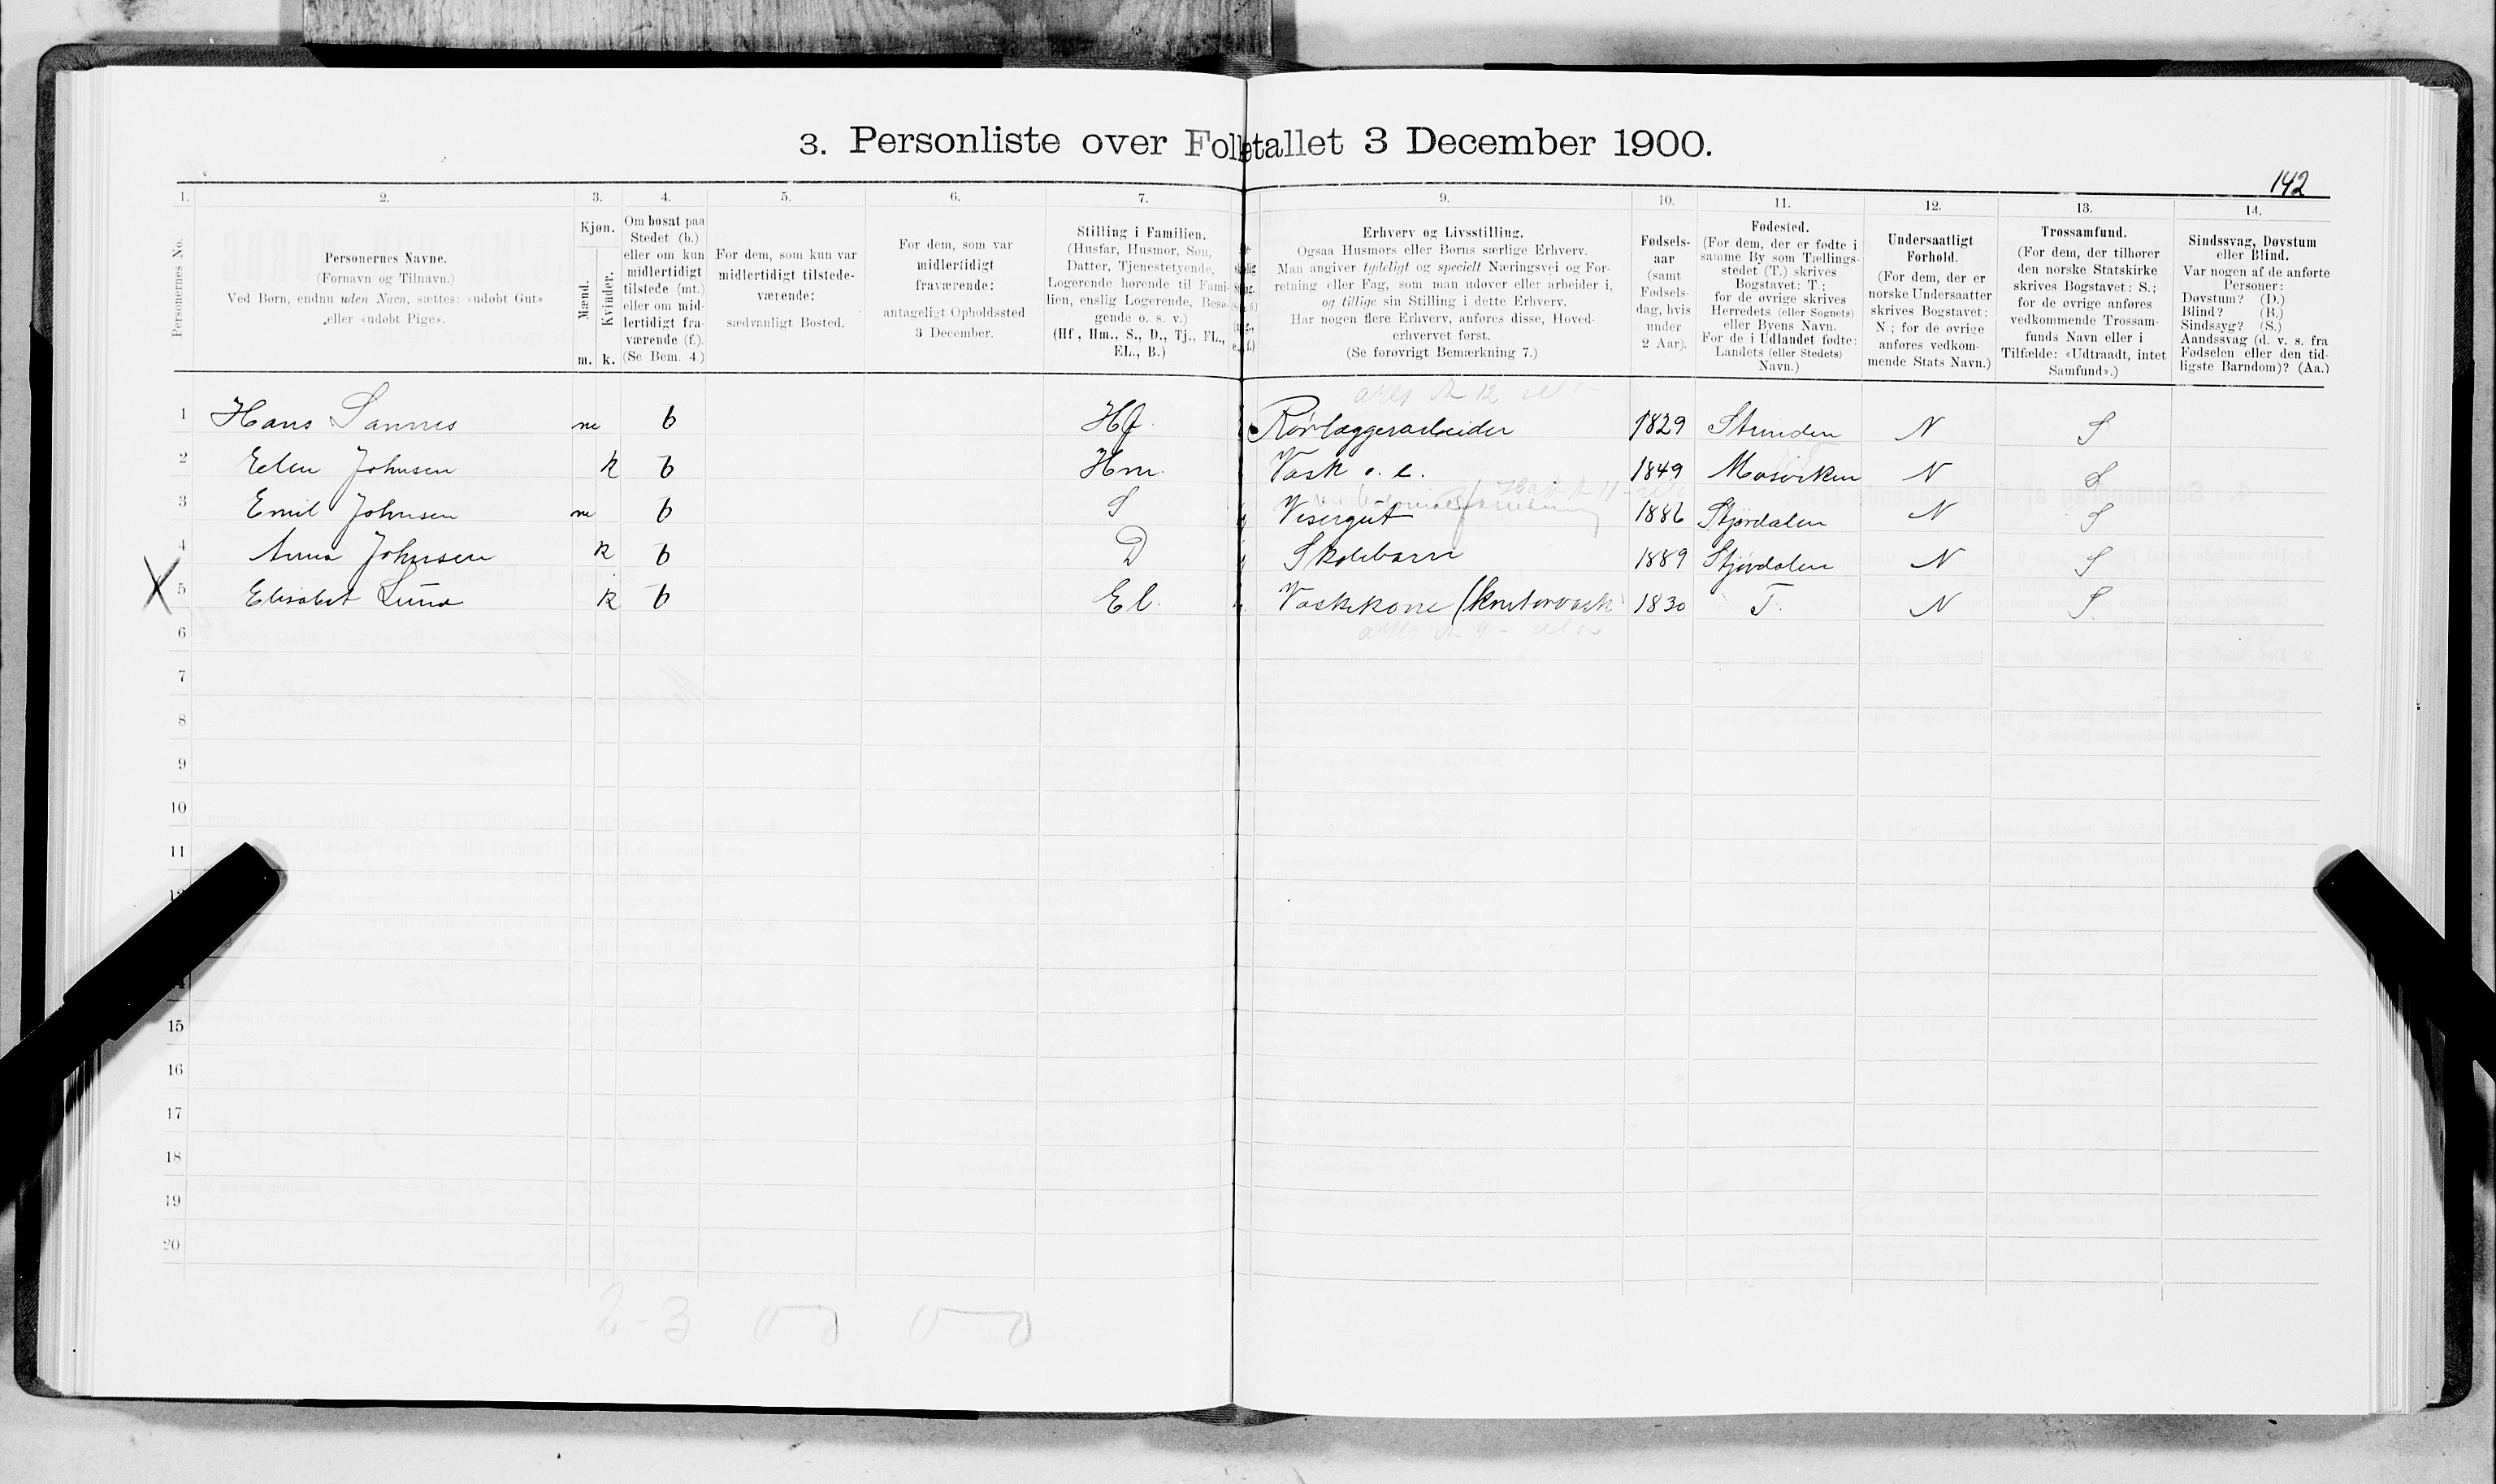 3. Personliste over Folketallet 3 December 1900.
142
1. 2. 3. 4. 5. 6. 7. 9. 10. 11. 12. 13. 14.
Personernes No.
Personernes Navne.
(Fornavn og Tilnavn.)
Ved Børn, endnu uden Navn, sættes: «udøbt Gut»
eller «udøbt Pige».
Kjøn.
Mænd.
Kvinder.
m. k.
Om bosat paa
Stedet (b.)
eller om kun
midlertidigt
tilstede (mt.)
eller om mid-
lertidigt fra-
værende (f.)
(Se Bem. 4.)
For dem, som kun var
midlertidigt tilstede-
værende:
sædvanligt Bosted.
For dem, som var
midlertidigt
fraværende:
antageligt Opholdssted
3 December.
Stilling i Familien.
(Husfar, Husmor, Søn,
Datter, Tjenestetyende,
Logerende hørende til Fami-
lien, enslig Logerende, Besø-
gende o. s. v.)
(Hf., Hm., S., D., Tj., FL.,
EL., B.)
Erhverv og Livsstilling.
Ogsaa Husmors eller Børns særlige Erhverv.
Man angiver tydeligt og specielt Næringsvei og For-
retning eller Fag, som man udøver eller arbeider i,
og tillige sin Stilling i dette Erhverv.
Har nogen flere Erhverv, anføres disse, Hoved-
erhvervet først.
(Se forøvrigt Bemærkning 7.)
Fødsels-
aar
(samt
Fødsels-
dag, hvis
under
2 Aar).
Fødested.
(For dem, der er fødte i
samme By som Tællings-
stedet (T.) skrives
Bogstavet: T.;
for de øvrige skrives
Herredets (eller Sognets)
eller Byens Navn.
For de i Udlandet fødte:
Landets (eller Stedets)
Navn.)
Undersaatligt
Forhold.
(For dem, der er
norske Undersaatter
skrives Bogstavet:
N.; for de øvrige
anføres vedkom-
mende Stats Navn.)
Trossamfund.
(For dem, der tilhører
den norske Statskirke
skrives Bogstavet: S.;
for de øvrige anføres
vedkommende Trossam-
funds Navn eller i
Tilfælde: «Udtraadt, intet
Samfund».)
Sindssvag, Døvstum
eller Blind.
Var nogen af de anførte
Personer:
Døvstum? (D.)
Blind? (B.)
Sindssyg? (S.)
Aandssvag (d. v. s. fra
Fødselen eller den tid-
ligste Barndom)? (Aa.)
1 Hans Sannes m b Hf. Rørlæggerarbeider 1829 Strinden N S
2 Elen Johnsen k b Hm. Vask o. l. 1849 Mosviken N S
3 Emil Johnsen m b S Visergut 1886 Stjørdalen N S
4 Anna Johnsen k b D Skolebarn 1889 Stjørdalen N S
X 5 Elisabet Lund k b El. Vaskekone (kontorvask 1830 T. N S.
6
7
8
9
10
11
15
16
17
18
19
20
2-3